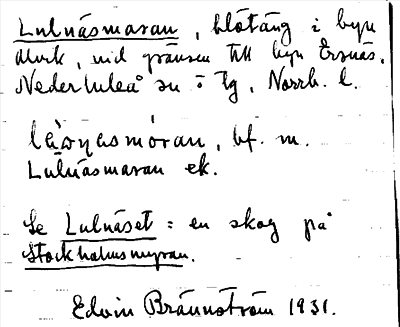 Lulnäsmaran, blötäng i byn
Alvik, vid gränsen till byn Ersnäs,
Nederluleå sn o tg, Norrb. l.
Lulnäsmaran ek.
Se Lulnäset = en skog på
Stockholmsmyran.
Edvin Brännström 1931.